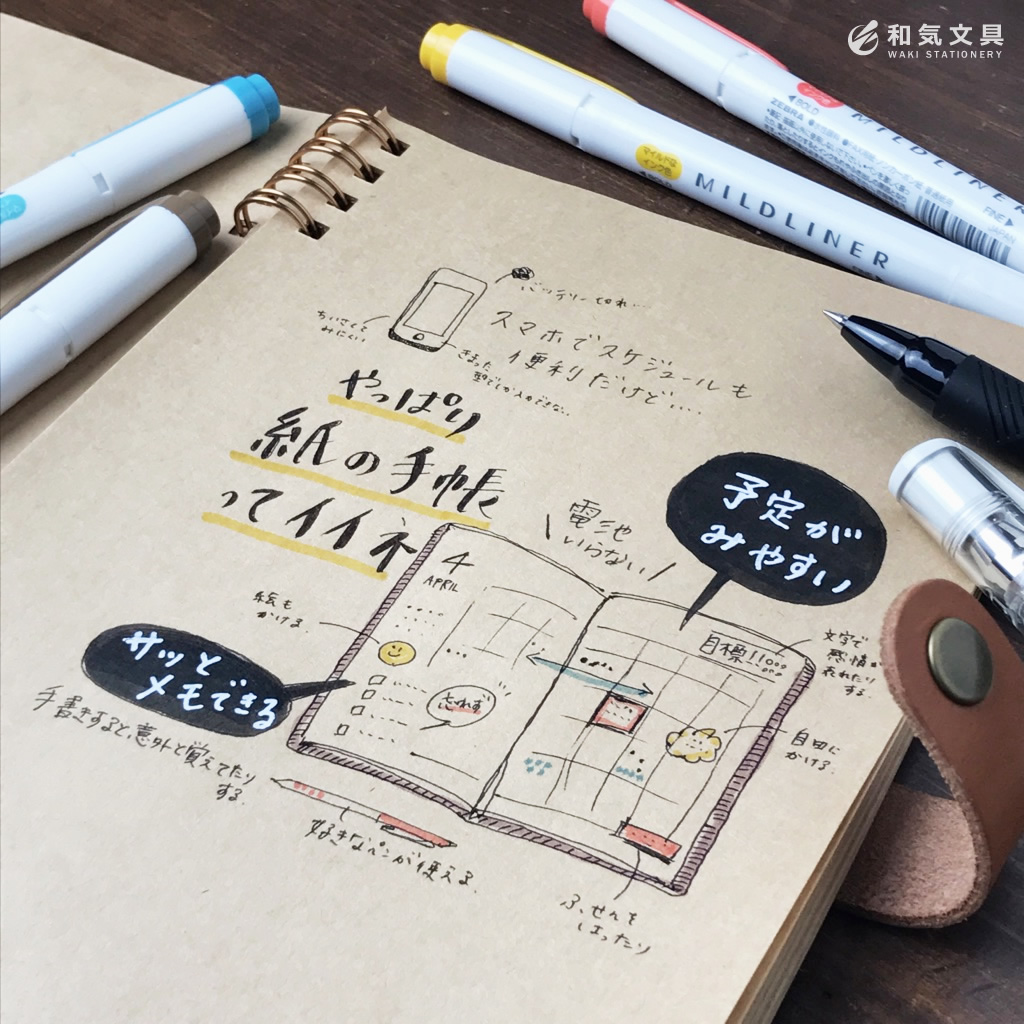 和気文具
WAKI STATIONERY
BOLD
ZEBRA
マイルドな
インク色
MILDLINER
FINE
JAPAN
バッテリー切れ…
ちいさくて
みにくい
スマホでスケジュールも
便利だけど…
きまった
型でしか入力できない。
やっぱり
紙の手帳
ってイイネ
電池
いらない
予定が
みやすい
4
APRIL
絵も
かける。
目標!!
文字で
感情
表れたり
する。
サッと
メモできる
手書きすると、意外と覚えてたり
する。
自由に
かける。
好きなペンが使える。
ふせんを
はったり